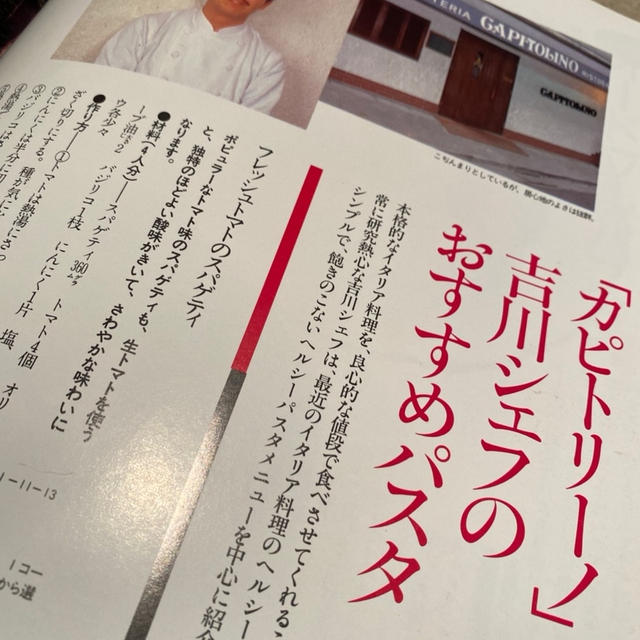 TERIA CAPITOLINO RISTO
CAPITOLINO
こぢんまりとしているが、居心地のよさは抜群。
「カピトリーノ」
吉川シェフの
おすすめパスタ
本格的なイタリア料理を、良心的な値段で食べさせてくれる、
常に研究熱心な吉川シェフは、最近のイタリア料理のヘルシー
シンプルで、飽きのこないヘルシーパスタメニューを中心に紹介
フレッシュトマトのスパゲティ
ポピュラーなトマト味のスパゲティも、生トマトを使う
と、独特のほどよい酸味がきいて、さわやかな味わいに
なります。
●材料(4人分)―スパゲティ360グラ トマト4個
バジリコ1枝 にんにく1片 塩、オリ
ーブ油 各少々
●作り方―①トマトは熱湯にさっ
ざく切りにする。
②にんにく
③バジリコは半分
1-11-13
1コー
から選